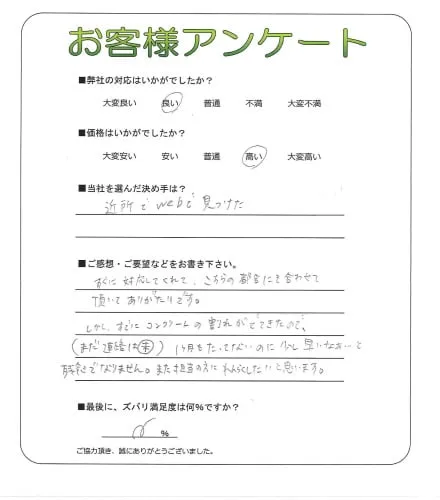 お客様アンケート
■弊社の対応はいかがでしたか？
大変良い 良い 普通 不満 大変不満
■価格はいかがでしたか？
大変安い 安い 普通 高い 大変高い
■当社を選んだ決め手は？
近所で webで 見つけた
■ご感想・ご要望などをお書き下さい。
すぐに対応してくれて、こちらの都合にも合わせて
頂いてありがたいです。
しかし、すでにコンクリートの割れがでてきたので、
(まだ連絡は㊤) 1ヶ月もたってないのに少し早いなあって
でなりません。また担当の方にれんらくしたいと思います。
■最後に、ズバリ満足度は何%ですか？
%
ご協力頂き、誠にありがとうございました。